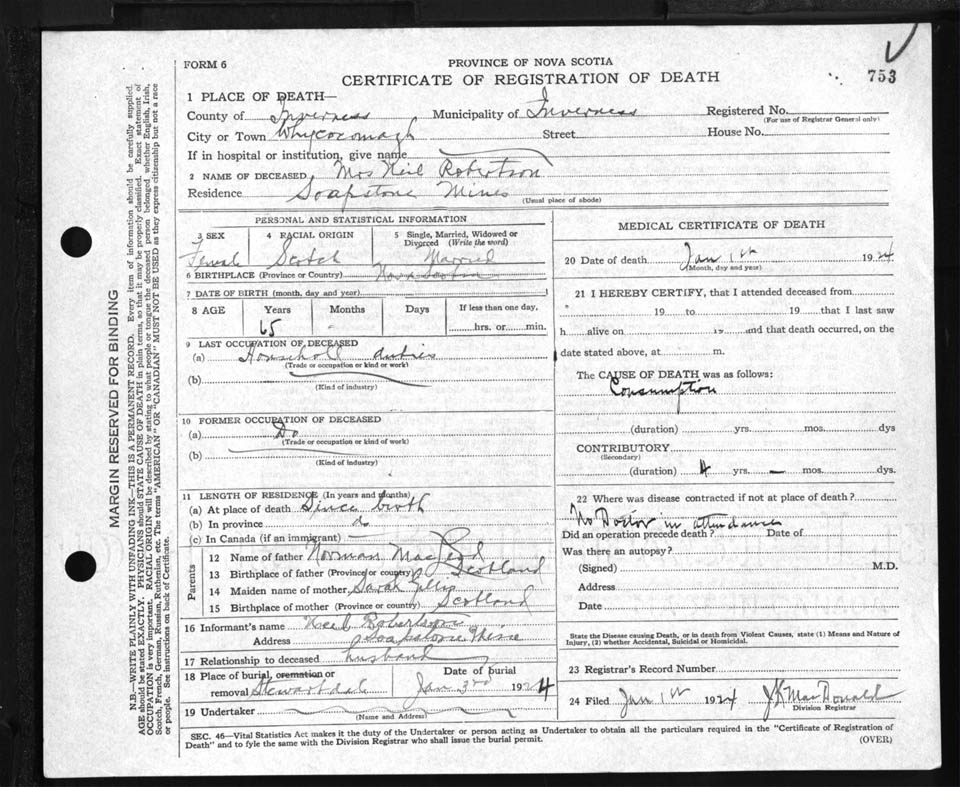 FORM 6
PROVINCE OF NOVA SCOTIA
CERTIFICATE OF REGISTRATION OF DEATH
753
1 PLACE OF DEATH—
County of Inverness Municipality of Inverness Registered No.
(For use of Registrar General only)
City or Town Whycocomagh Street House No.
If in hospital or institution, give name
2 NAME OF DECEASED Mrs Neil Robertson
Residence Soapstone Mines
(Usual place of abode)
PERSONAL AND STATISTICAL INFORMATION
3 SEX 4 RACIAL ORIGIN 5 Single, Married, Widowed or Divorced (Write the word)
Female Scotch Married
6 BIRTHPLACE (Province or Country) Nova Scotia
7 DATE OF BIRTH (month, day and year)
8 AGE Years Months Days If less than one day.
65 - hrs. or min.
9 LAST OCCUPATION OF DECEASED
(a) Household duties
(Trade or occupation or kind or work)
(b)
(Kind of industry)
10 FORMER OCCUPATION OF DECEASED
(a) Do
(Trade or occupation or kind of work)
(b)
(Kind of industry)
11 LENGTH OF RESIDENCE (In years and months)
(a) At place of death Since birth
(b) In province do
(c) In Canada (if an immigrant)
Parents
12 Name of father Norman MacLeod
13 Birthplace of father (Province or country) Scotland
14 Maiden name of mother Sarah Gillis
15 Birthplace of mother (Province or country) Scotland
16 Informant's name Neil Robertson
Address Soapstone Mine
17 Relationship to deceased husband
18 Place of burial, cremation or removal Stewartdale
Date of burial Jan 3rd 1924
19 Undertaker
(Name and Address)
MEDICAL CERTIFICATE OF DEATH
20 Date of death Jan 1st 1924
(Month, day and year)
21 I HEREBY CERTIFY, that I attended deceased from
19 to 19 that I last saw
h alive on 19 and that death occurred, on the
date stated above, at m.
The CAUSE OF DEATH was as follows:
Consumption
(duration) yrs. mos. dys
CONTRIBUTORY
(Secondary)
(duration) 4 yrs. — mos. dys.
22 Where was disease contracted if not at place of death?
No Doctor in attendance
Did an operation precede death? Date of
Was there an autopsy?
(Signed) M.D.
Address
Date
State the Disease causing Death, or in death from Violent Causes, state (1) Means and Nature of
Injury, (2) whether Accidental, Suicidal or Homicidal.
23 Registrar's Record Number
24 Filed Jan 1st 1924 J K MacDonald
Division Registrar
SEC. 46—Vital Statistics Act makes it the duty of the Undertaker or person acting as Undertaker to obtain all the particulars required in the "Certificate of Registration of
Death" and to fyle the same with the Division Registrar who shall issue the burial permit.
(OVER)
MARGIN RESERVED FOR BINDING
N.B.—WRITE PLAINLY WITH UNFADING INK—THIS IS A PERMANENT RECORD. Every item of information should be carefully supplied.
AGE should be stated EXACTLY. PHYSICIANS should STATE CAUSE OF DEATH in plain terms, so that it may be properly classified. Exact statement of
OCCUPATION is very important. RACIAL ORIGIN will be described by stating to what people or tongue the deceased person belonged, whether English, Irish,
Scotch, French, German, Russian, Ruthenian, etc. The terms "AMERICAN" OR "CANADIAN" MUST NOT BE USED as they express citizenship but not a race
or people. See instructions on back of Certificate.